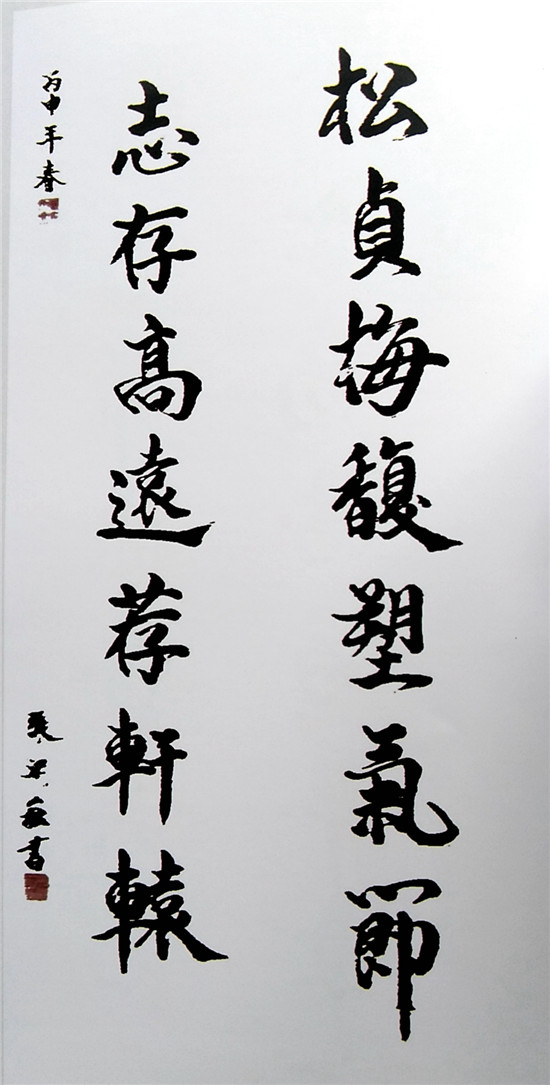 松貞梅馥塑氣節
志存高遠荐軒轅
丙申年春
書